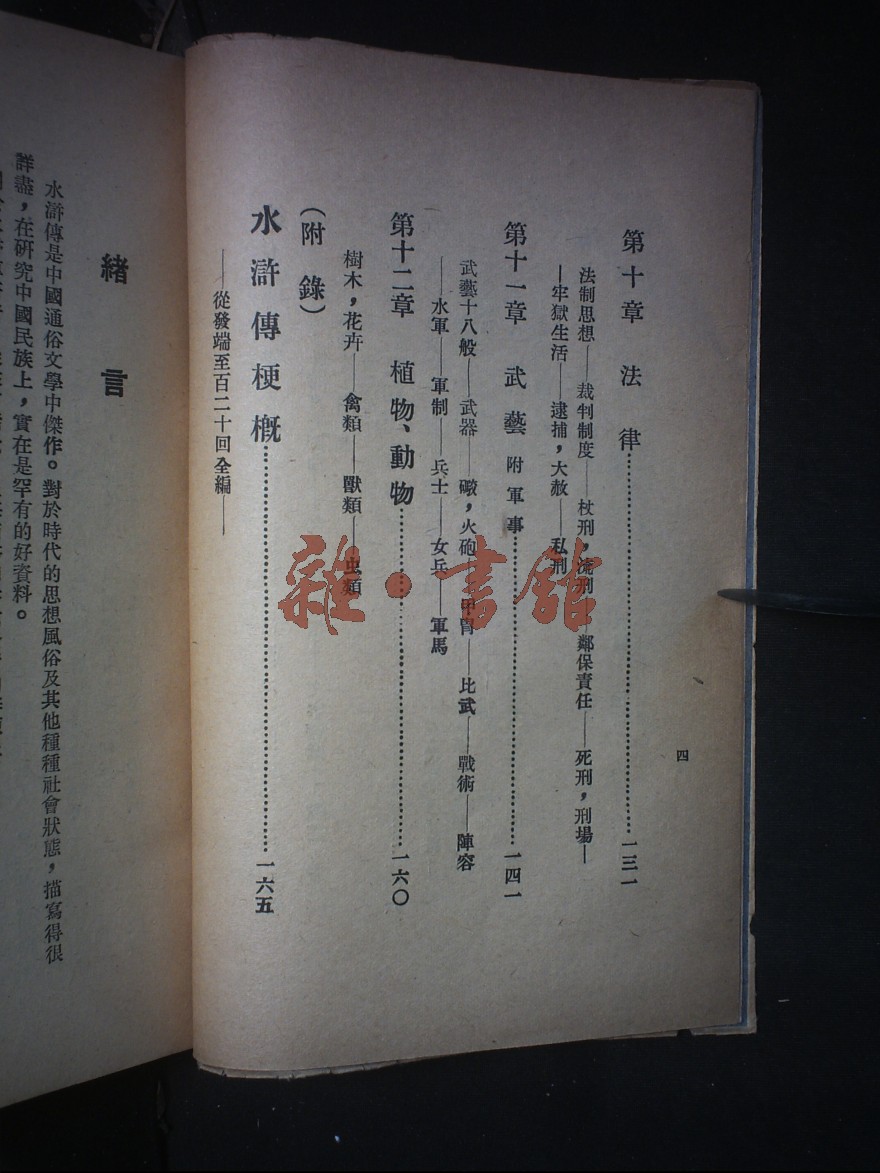 四
第十章 法律……一三一
法制思想——裁判制度——杖刑，流刑——鄰保責任——死刑，刑場—
—牢獄生活——逮捕，大赦——私刑
第十一章 武藝 附軍事……一四一
武藝十八般——武器——礮，火砲——甲冑——比武——戰術——陣容
——水軍——軍制——兵士——女兵——軍馬
第十二章 植物、動物……一六〇
樹木，花卉——禽類——獸類——虫類
（附錄）
水滸傳梗概……一六五
——從發端至百二十回全編——
雜·書館
緒言
水滸傳是中國通俗文學中傑作。對於時代的思想風俗及其他種種社會狀態，描寫得很
詳盡，在研究中國民族上，實在是罕有的好資料。